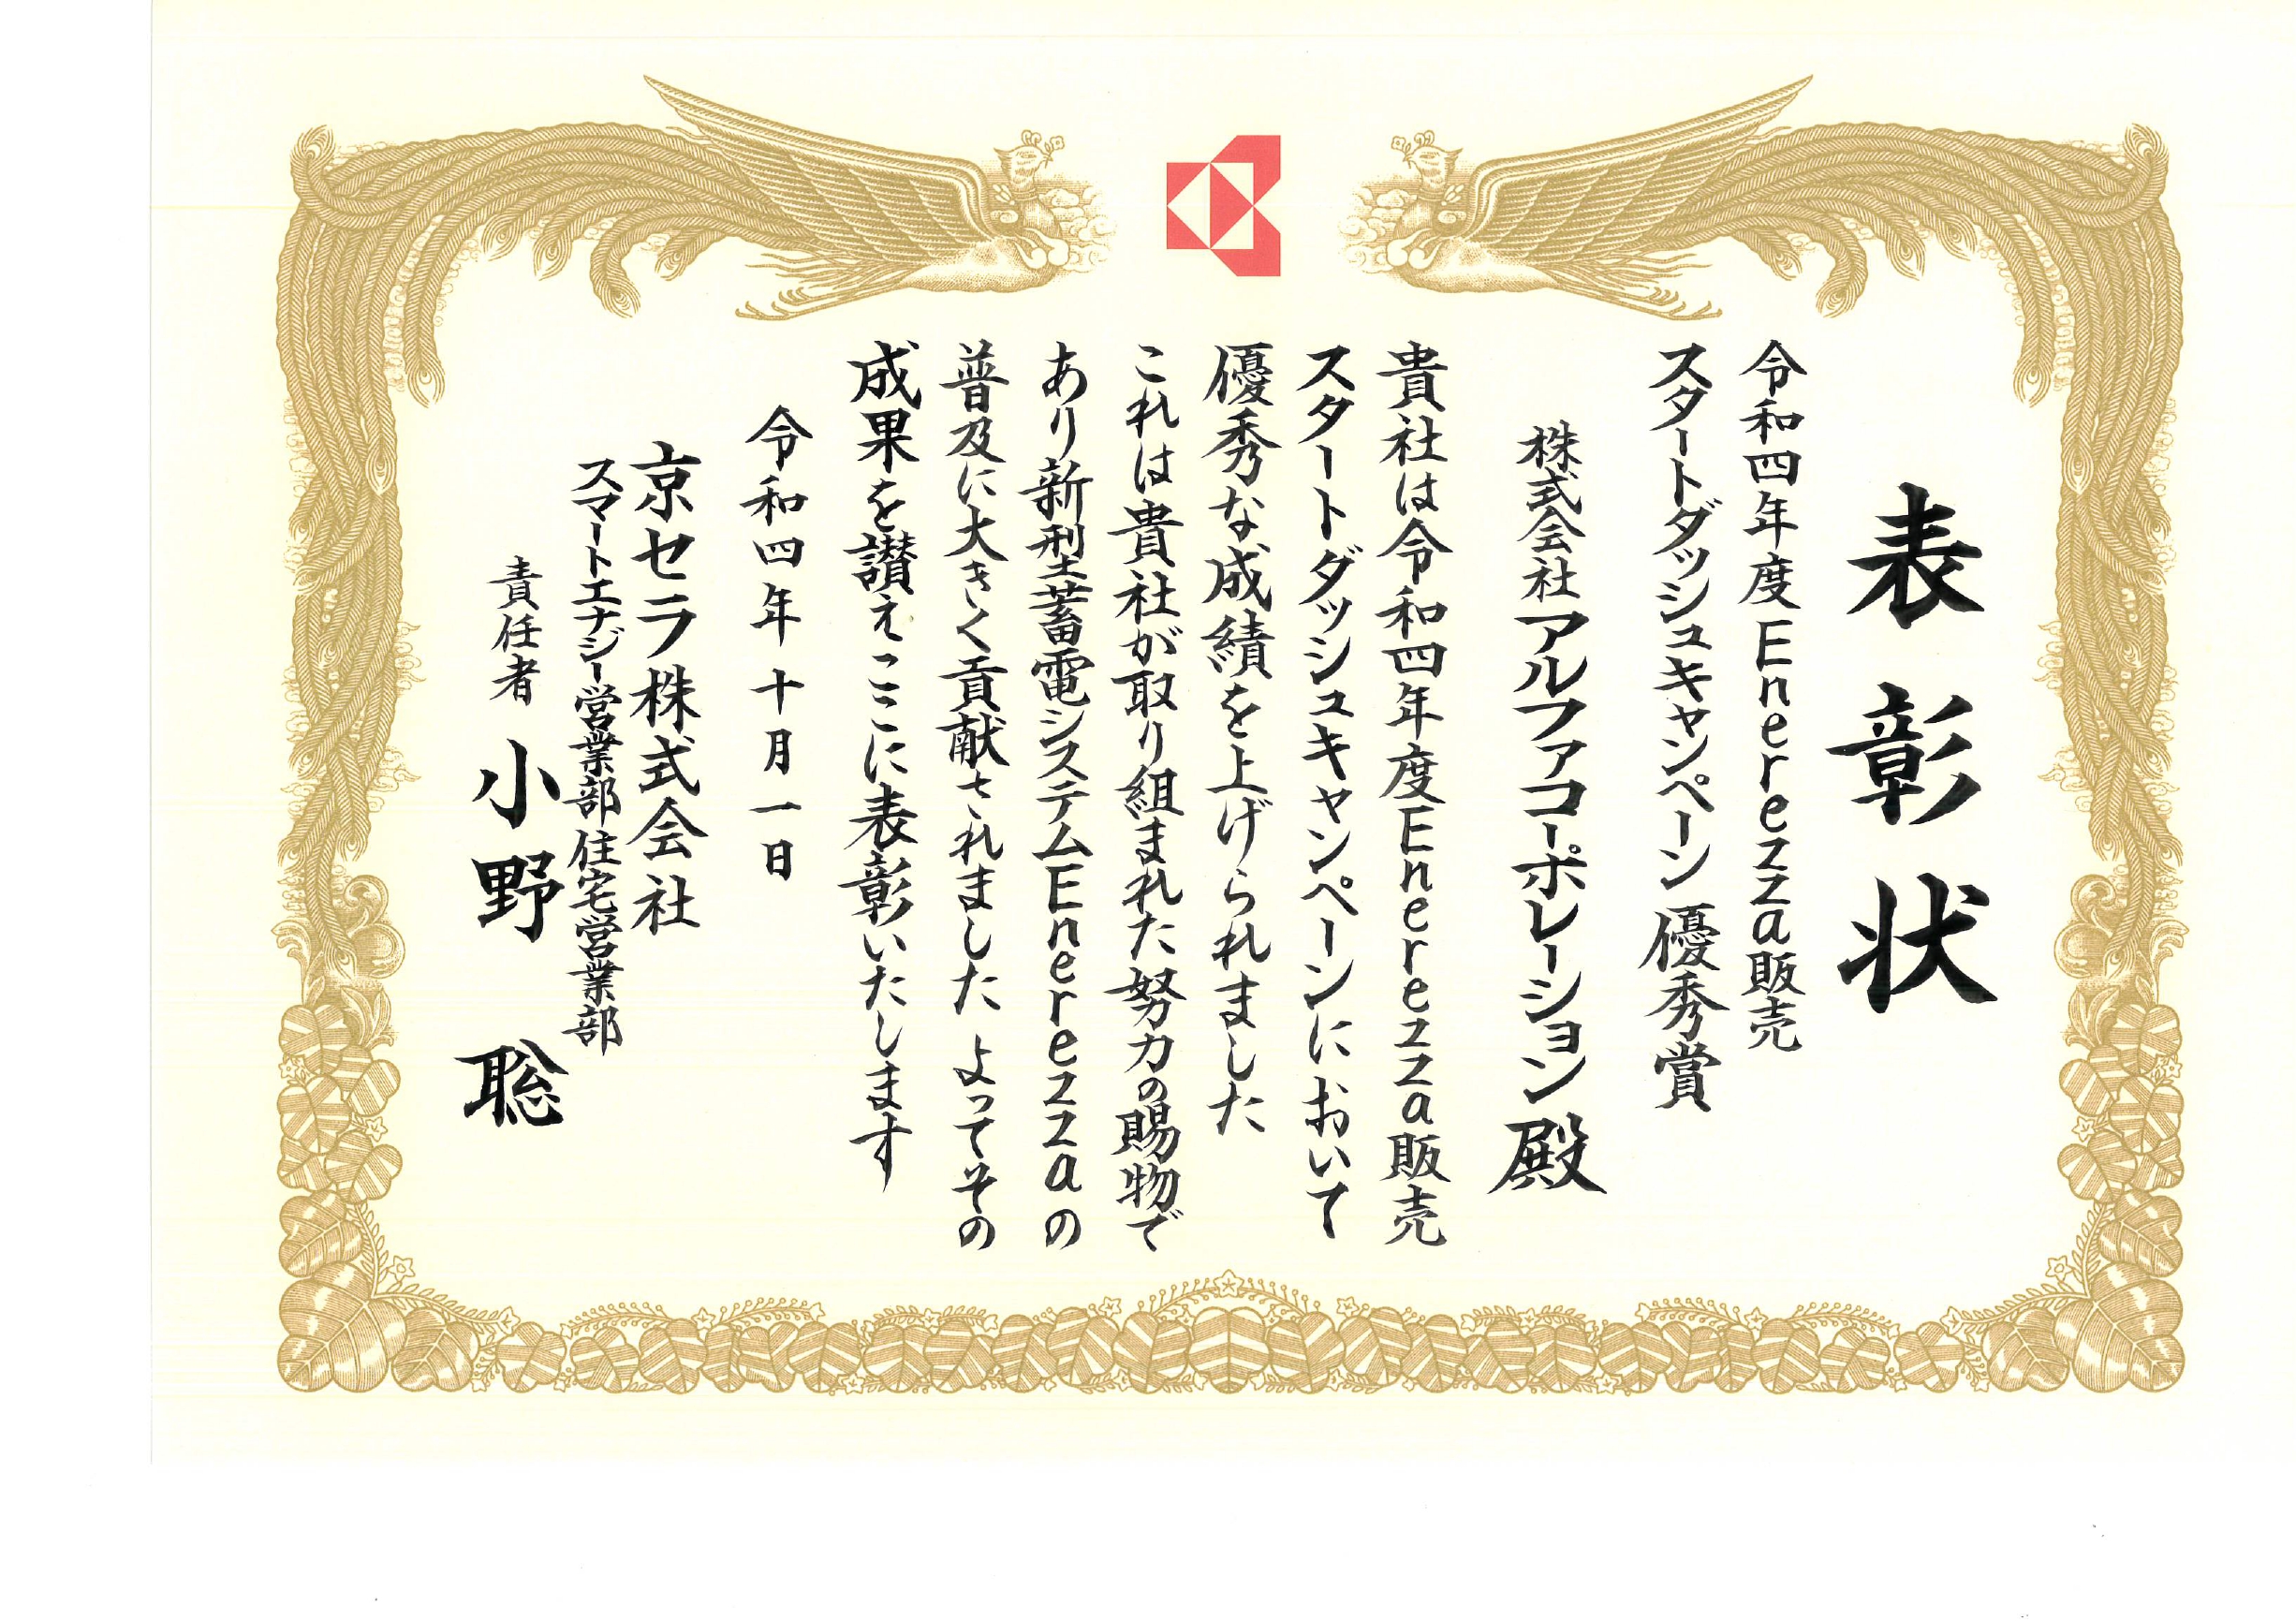 表彰状
令和四年度Enerezza販売
スタートダッシュキャンペーン 優秀賞
株式会社アルファコーポレーション 殿
貴社は令和四年度Enerezza販売
スタートダッシュキャンペーンにおいて
優秀な成績を上げられました
これは貴社が取り組まれた努力の賜物で
あり新型蓄電システムEnerezzaの
普及に大きく貢献されました よってその
成果を讃えここに表彰いたします
令和四年十月一日
京セラ株式会社
スマートエナジー営業部住宅営業部
責任者 小野 聡